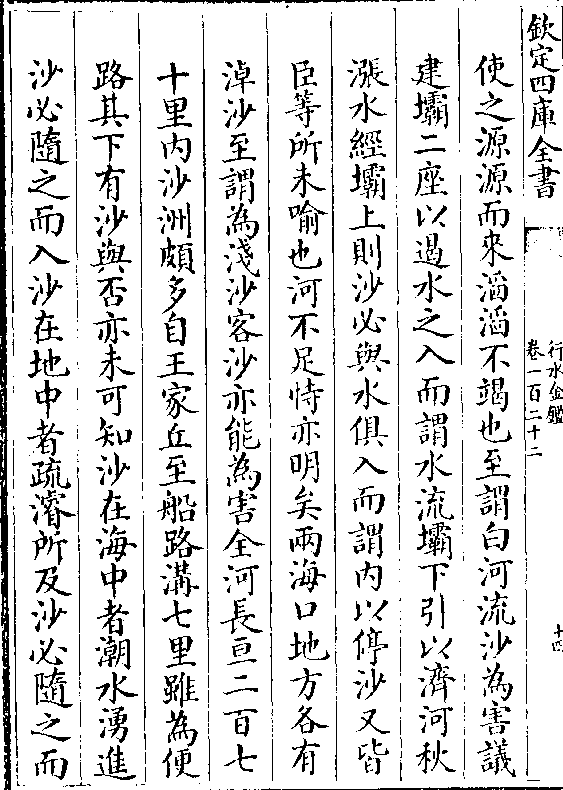 欽定四庫全書
行水金鑑
卷一百二十二
十四
使之源源而來滔滔不竭也至謂白河流沙為害議
建壩二座以遏水之入而謂水流壩下引以濟河秋
漲水經壩上則沙必與水俱入而謂内以停沙又皆
臣等所未喻也河不足恃亦明矣兩海口地方各有
淖沙至謂為淺沙客沙亦能為害全河長亘二百七
十里内沙洲頗多自王家丘至船路溝七里雖為便
路其下有沙與否亦未可知沙在海中者潮水湧進
沙必隨之而入沙在地中者疏濬所及沙必隨之而